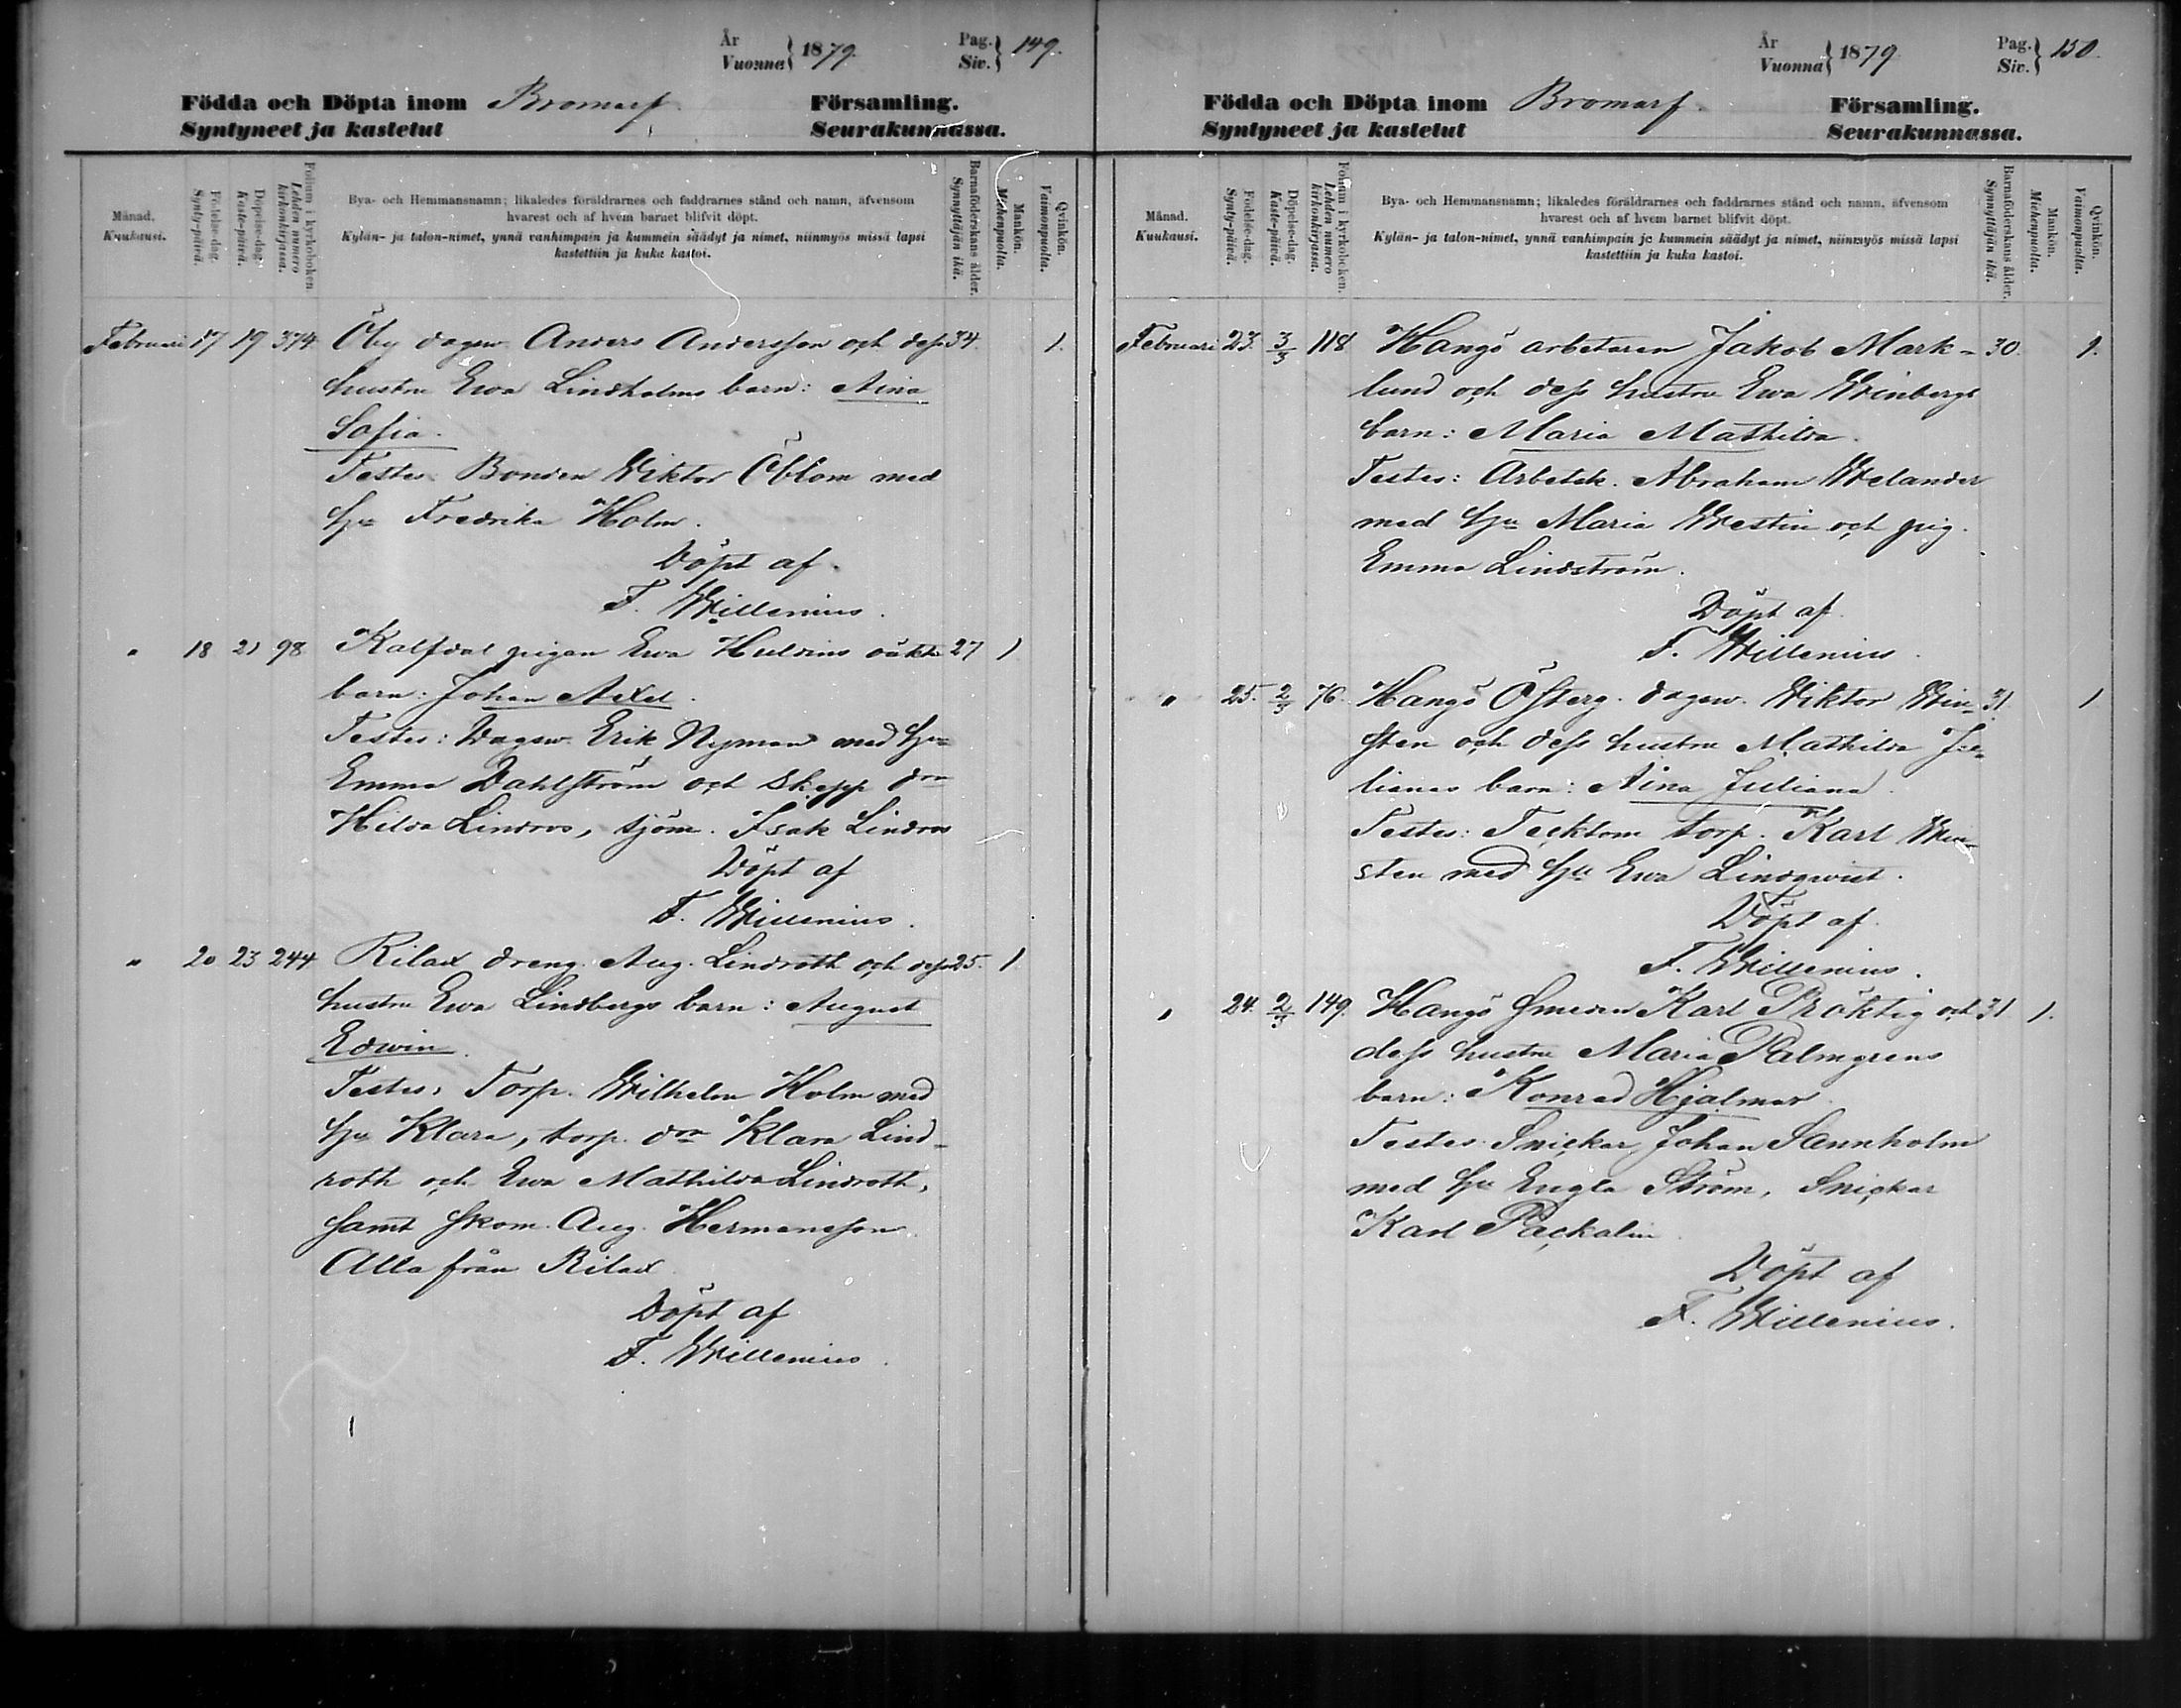 År
Vuonna } 1879.
Pag.
Siv. } 149.
Födda och Döpta inom Bromarf Församling.
Syntyneet ja kastetut Seurakunnassa.
Månad.
Kuukausi.
Födelse-dag.
Synty-päivä.
Döpelse-dag.
Kaste-päivä.
Folium i kyrkoboken.
Lehden numero
kirkonkirjassa.
Bya- och Hemmansnamn; likaledes föräldrarnes och faddrarnes stånd och namn, äfvensom
hvarest och af hvem barnet blifvit döpt.
Kylän- ja talon-nimet, ynnä vanhimpain ja kummein säädyt ja nimet, niinmyös missä lapsi
kastettiin ja kuka kastoi.
Barnaföderskans ålder.
Synnyttäjän ikä.
Mankön.
Miehenpuolta.
Qvinkön.
Vaimonpuolta.
Februari 17 19 374. Öby dagsw. Anders Andersson och dess 34. 1.
hustru Ewa Lindholms barn: Aina
Sofia.
Testes: Bonden Wiktor Öblom med
hu Fredrika Holm.
Döpt af
F. Willenius.
" 18 21 98 Kalfdal pigan Ewa Huldins oäkta 27 1
barn: Johan Axel.
Testes: Dagsw. Erik Nyman med hu
Emma Dahlström och Skepp. drn
Hilda Lindros, sjöm. Isak Lindros
Döpt af
F. Willenius.
" 20 23 244 Rilax dreng Aug. Lindroth och dess 25. 1.
hustru Ewa Lindbergs barn: August
Edwin.
Testes: Torp. Wilhelm Holm med
hu Klara, torp. drn Klara Lind-
roth och Ewa Mathilda Lindroth,
samt skom. Aug. Hermansson.
Alla från Rilax
Döpt af
F. Willenius.
År
Vuonna } 1879
Pag.
Siv. } 150.
Födda och Döpta inom Bromarf Församling.
Syntyneet ja kastetut Seurakunnassa.
Månad.
Kuukausi.
Födelse-dag.
Synty-päivä.
Döpelse-dag.
Kaste-päivä.
Folium i kyrkoboken.
Lehden numero
kirkonkirjassa.
Bya- och Hemmansnamn; likaledes föräldrarnes och faddrarnes stånd och namn, äfvensom
hvarest och af hvem barnet blifvit döpt.
Kylän- ja talon-nimet, ynnä vanhimpain ja kummein säädyt ja nimet, niinmyös missä lapsi
kastettiin ja kuka kastoi.
Barnaföderskans ålder.
Synnyttäjän ikä.
Mankön.
Miehenpuolta.
Qvinkön.
Vaimonpuolta.
Februari 23. 3/3 118 Hangö arbetaren Jakob Mark- 30. 1.
lund och dess hustru Ewa Winbergs
barn: Maria Mathilda.
Testes: Arbetsk. Abraham Welander
med hu Maria Westin och pig.
Emma Lindström.
Döpt af
F. Willenius.
" 25. 2/3 76. Hangö Österg. dagsw. Wiktor Win- 31. 1
sten och dess hustru Mathilda Ju-
lianas barn: Aina Juliana.
Testes: Tecktom torp. Karl Win-
sten med hu Ewa Lindqwist.
Döpt af
F. Willenius.
" 24. 2/3 149. Hangö Smeden Karl Präktig och 31 1.
dess hustru Maria Palmgrens
barn: Konrad Hjalmar.
Testes: Snickar Johan Sannholm
med hu Engla Ström, Snickar
Karl Packalin.
Döpt af
F. Willenius.